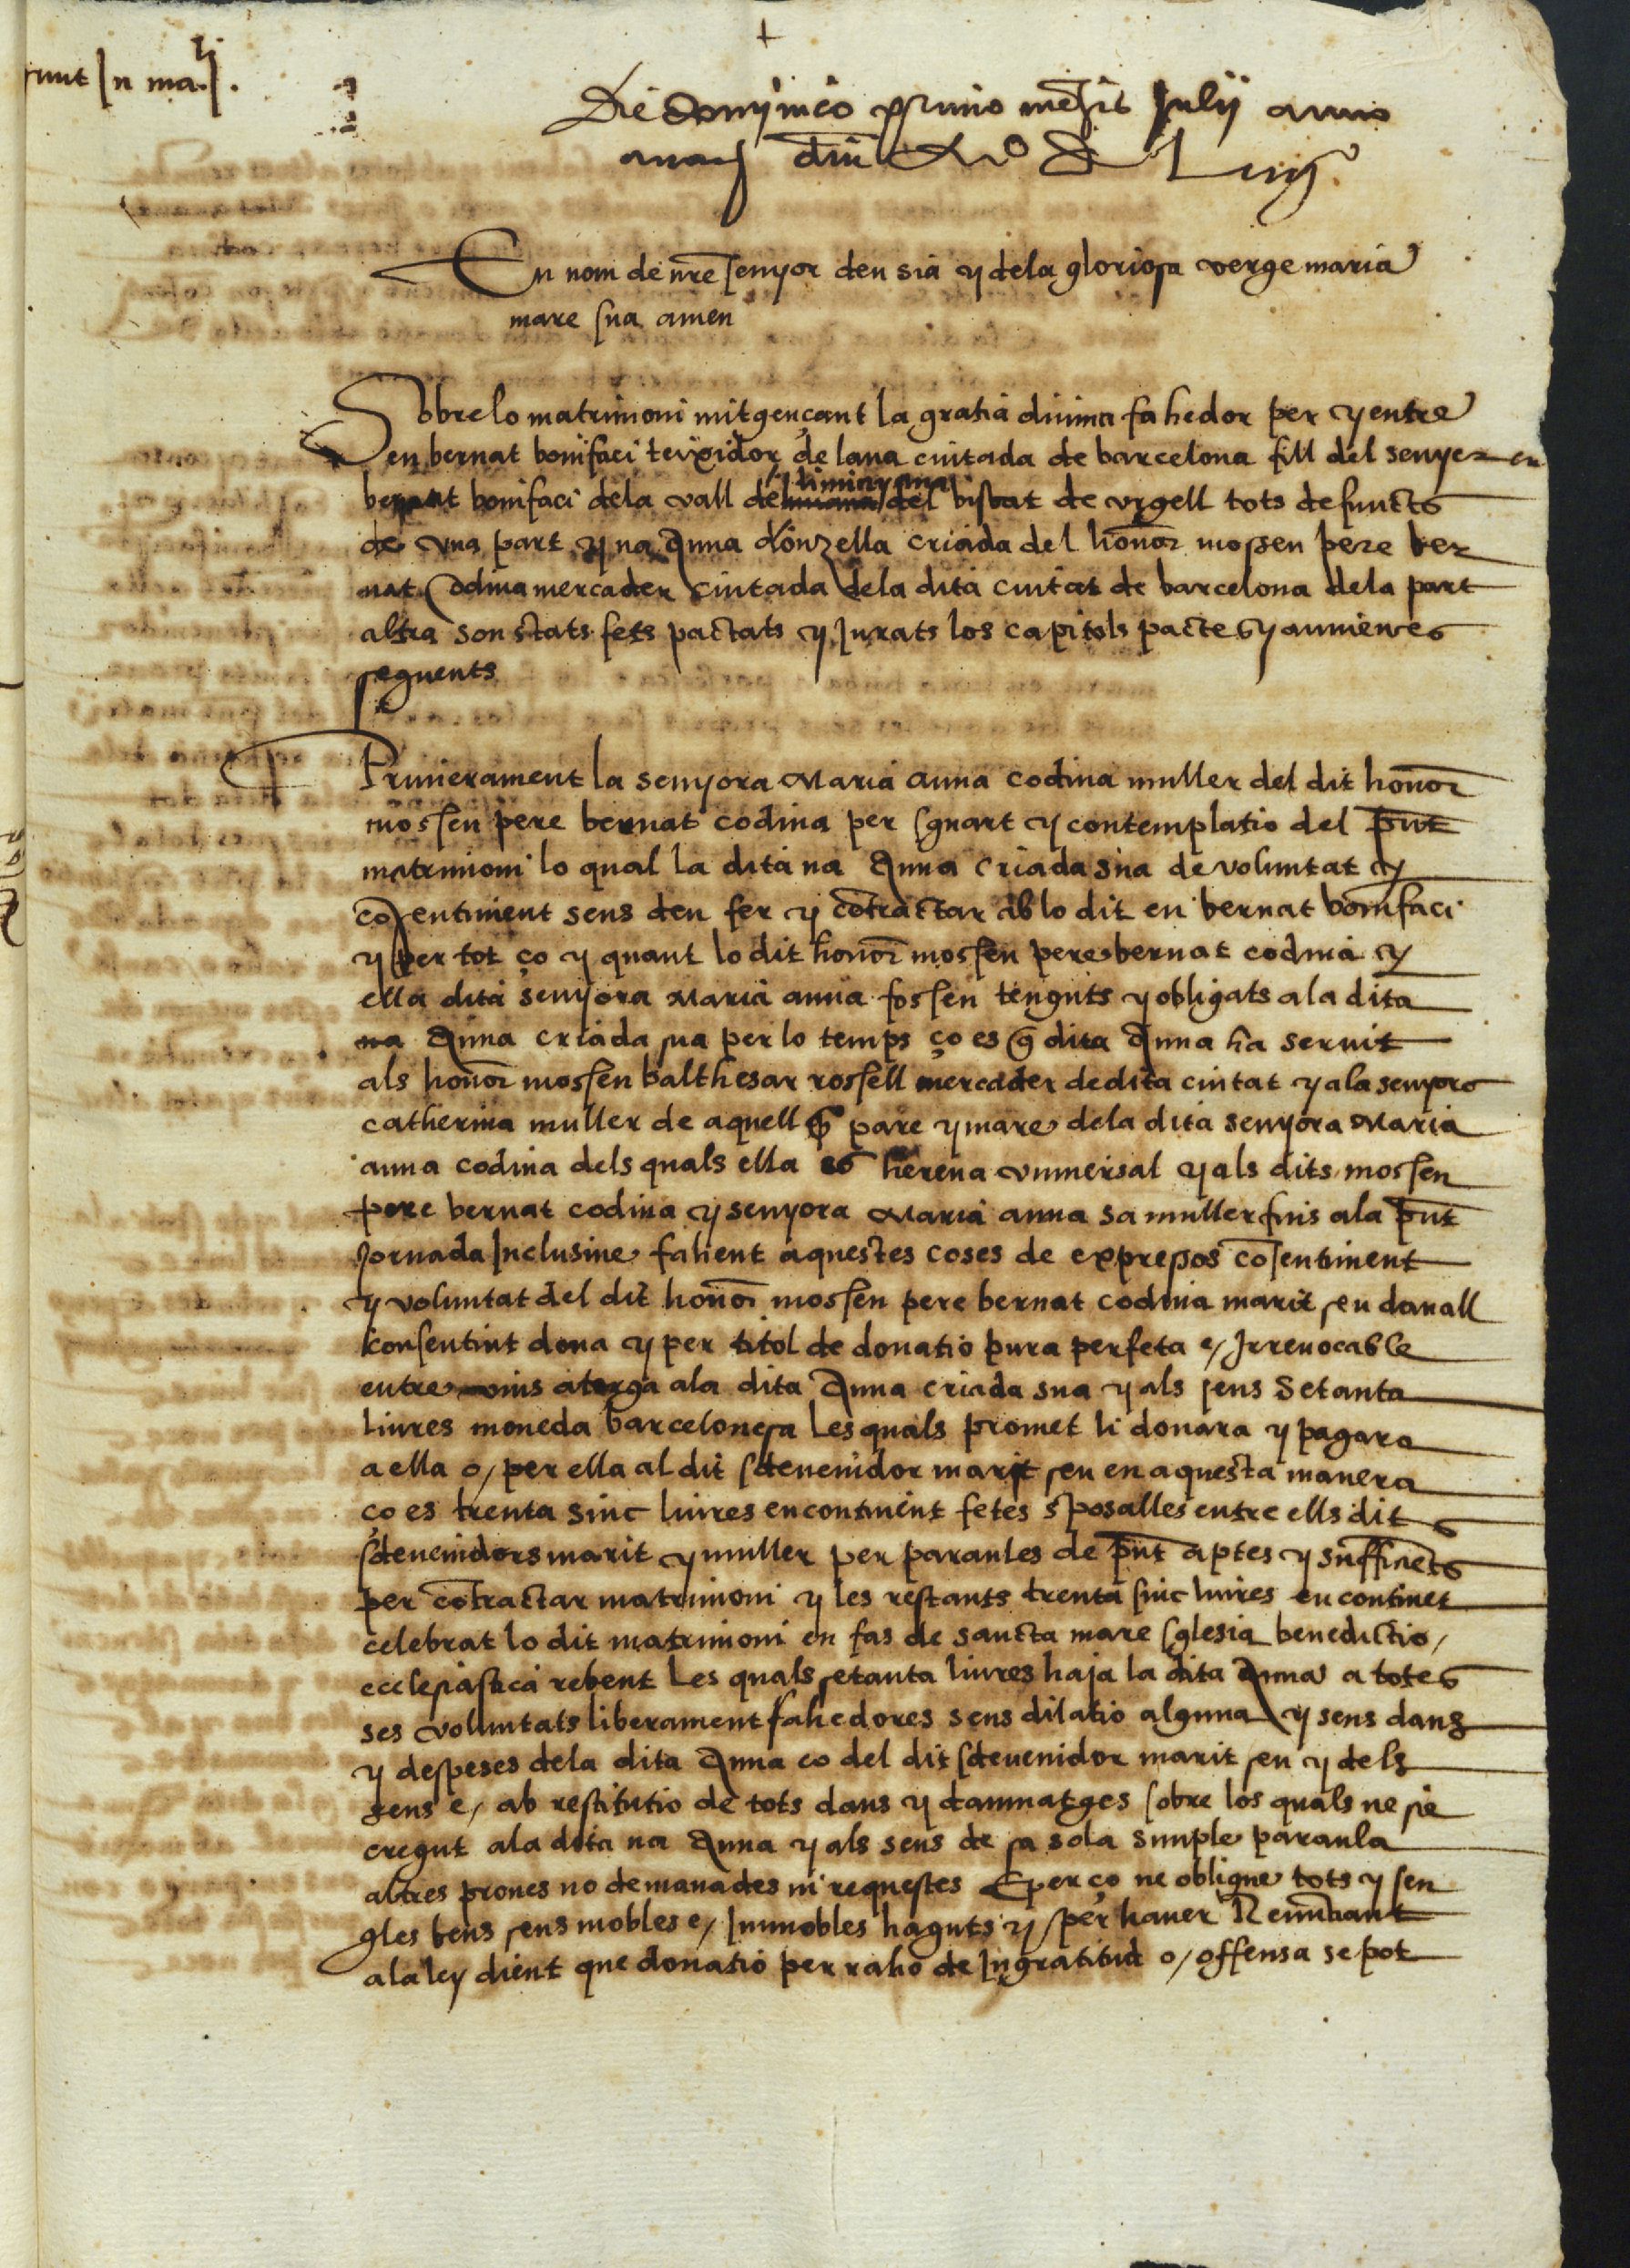 +
runt In ma.li.
Die dominico primo mensis Julii anno
anat dni M D Lviiij
En nom de nre senyor deu sia y dela gloriosa verge maria
mare sua amen
Sobre lo matrimoni mitgençant la gratia divina fahedor per y entre
en bernat bonifaci teixidor de lana ciutada de barcelona fill del senyer en
bernat bonifaci dela vall de limiayana del bisbat de urgell tots defuncts
de una part y na Anna donzella criada del honor mossen pere ber
nat Codina mercader ciutada dela dita ciutat de barcelona dela part
altra son stats fets pactats y jurats los capitols pactes y avinences
seguents
Primerament la senyora Maria anna codina muller del dit honor
mossen pere bernat codina per sguart y contemplatio del pnt
matrimoni lo qual la dita na Anna criada sua de voluntat y
cosentiment seus deu fer y cotractar ab lo dit en bernat bonifaci
y per tot ço y quant lo dit honor mossen pere bernat codina y
ella dita senyora Maria anna fossen tenguts y obligats ala dita
na Anna criada sua per lo temps ço es q dita Anna ha servit
als honor mossen balthesar rossell mercader de dita ciutat y ala senyora
catherina muller de aquell q pare y mare dela dita senyora Maria
anna codina dels quals ella es hereua universal y als dits mossen
pere bernat codina y senyora Maria anna sa muller fins ala pnt
Jornada Inclusive fahent aquestes coses de expressos cosentiment
y voluntat del dit honor mossen pere bernat codina marit seu davall
konsentint dona y per titol de donatio pura perfeta e/ Irrevocable
entre vius atorga ala dita Anna criada sua y als seus Setanta
liures moneda barcelonesa Les quals promet li donara y pagara
a ella o/ per ella al dit sdevenidor marit seu en aquesta manera
ço es trenta sinc liures encontinent fetes sposalles entre ells dits
sdevenidors marit y muller per paraules de pnt aptes y sufficiets
per cotractar matrimoni y les restants trenta sinc liures en continet
celebrat lo dit matrimoni en fas de sancta mare sglesia benedictio/
ecclesiastica rebent Les quals setanta liures haja la dita Anna a totes
ses voluntats liberament fahedores sens dilatio alguna y sens dans
y despeses dela dita Anna co del dit sdevenidor marit seu y dels
seus e/ ab restitutio de tots dans y damnatges sobre los quals ne sie
cregut ala dita na Anna y als seus de sa sola simple paraula
altres proves no demanades ni requestes E per ço ne obligue tots y sen
gles bens seus mobles e/ Immobles haguts y per haver Renuciant
ala ley dient que donatio per raho de Ingratitud o/ offensa se pot